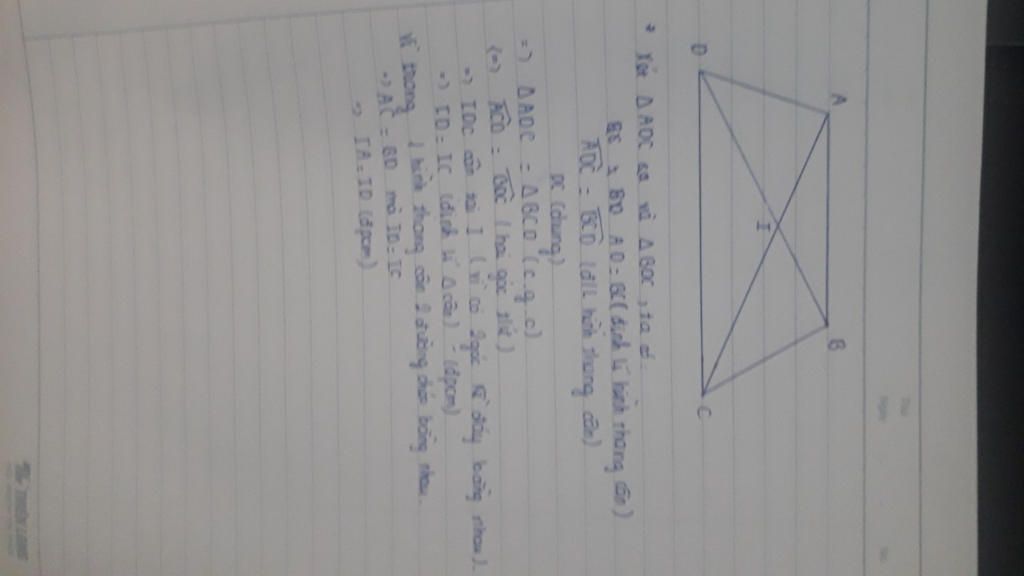 A
B
D
C
I
* Xét ΔADC và ΔBDC, ta có:
AD = BC (định lí hình thang cân)
ADC = BCD (đ/l hình thang cân)
DC (chung)
=> ΔADC = ΔBCD (c.g.c)
(=) ACD = BDC (hai góc)
=> IDC cân tại I (vì có 2 góc kề đáy bằng nhau).
=> ID = IC (định lí Δ cân) (đpcm)
Vì trong 1 hình thang cân 2 đường chéo bằng nhau.
=> AC = BD mà ID = IC
=> IA = IB (đpcm)
Thứ
Ngày
No
THIÊN LONG